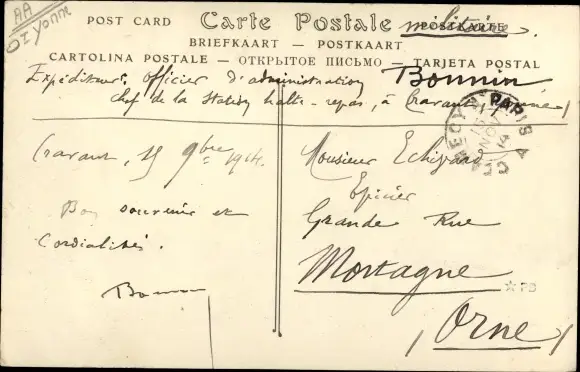 AA
POST CARD Carte Postale POSTKARTE militaire
BRIEFKAART — POSTKAART
CARTOLINA POSTALE — ОТКРЫТОЕ ПИСЬМО — TARJETA POSTAL
Expéditeur: officier d'administration Bonnin
chef de la station halte-repas, à Cravant (Yonne)
PARIS A
NOV
14
Cravant, 15 9bre 1914.
Bon souvenir et
Cordialités.
Bonnin
Monsieur
Epicier
Grande Rue
Mortagne
(Orne)